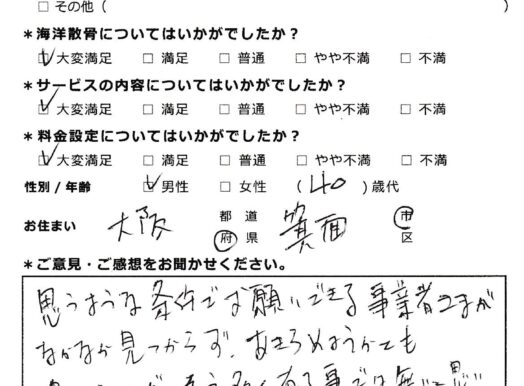 □ その他 (                    )
*海洋散骨についてはいかがでしたか?
☑ 大変満足 □ 満足 □ 普通 □ やや不満 □ 不満
*サービスの内容についてはいかがでしたか?
☑ 大変満足 □ 満足 □ 普通 □ やや不満 □ 不満
*料金設定についてはいかがでしたか?
☑ 大変満足 □ 満足 □ 普通 □ やや不満 □ 不満
性別 / 年齢 ☑ 男性 □ 女性 ( 40 ) 歳代
お住まい 大阪 都 道 府 県 箕面 市 区
*ご意見・ご感想をお聞かせください。
思うような条件でお願いできる事業者さまが
なかなか見つからず、あきらめようかとも